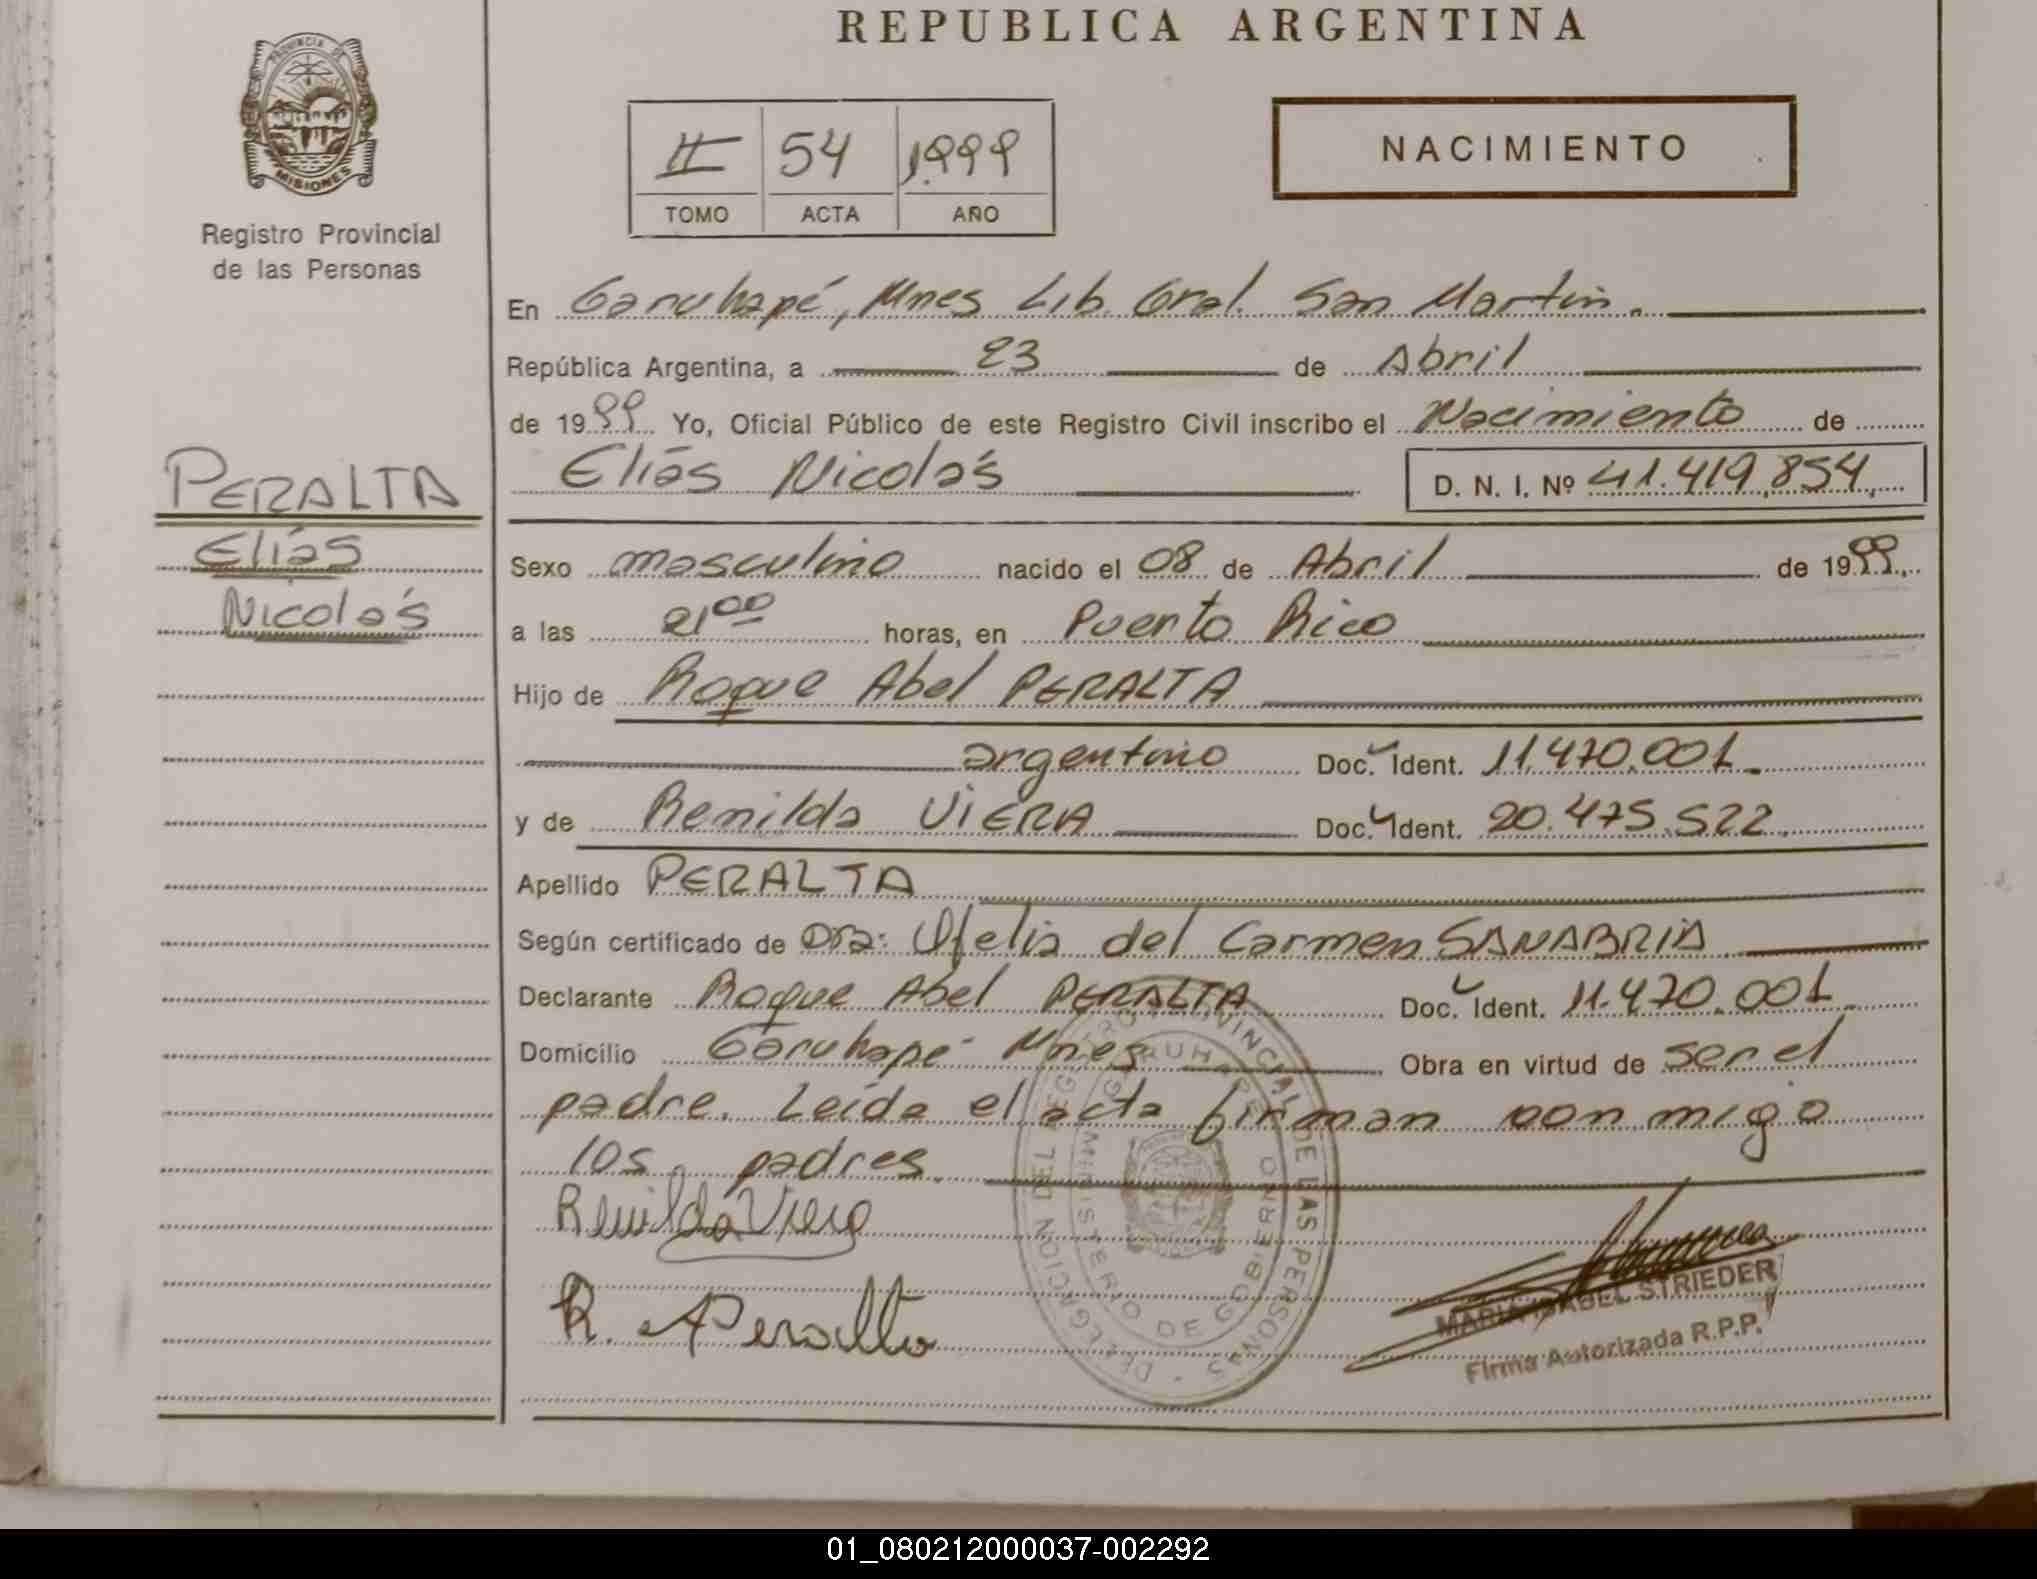 REPUBLICA ARGENTINA
PROVINCIA DE
MISIONES
Registro Provincial
de las Personas
II 54 1.999
TOMO ACTA AÑO
NACIMIENTO
En Garuhapé, Mnes Lib. Gral. San Martín.
República Argentina, a 23 de Abril
de 1999 Yo, Oficial Público de este Registro Civil inscribo el Nacimiento de
Elías Nicolás D. N. I. Nº 41.419.854
PERALTA
Elías
Nicolás
Sexo masculino nacido el 08 de Abril de 1999
a las 21 00 horas, en Puerto Rico
Hijo de Roque Abel PERALTA
argentino Doc. Ident. 11.470.001
y de Renilda VIERA Doc. Ident. 20.475.522
Apellido PERALTA
Según certificado de Dra: Ofelia del Carmen SANABRIA
Declarante Roque Abel PERALTA Doc. Ident. 11.470.001
Domicilio Garuhapé Mnes Obra en virtud de ser el
padre. Leída el acta firman conmigo
los padres.
Renilda Viera
R. A Peralta
DELEGACION DEL REGISTRO PROVINCIAL DE LAS PERSONAS
GARUHAPE
MINISTERIO DE GOBIERNO
MARIA ISABEL STRIEDER
Firma Autorizada R.P.P.
01_080212000037-002292